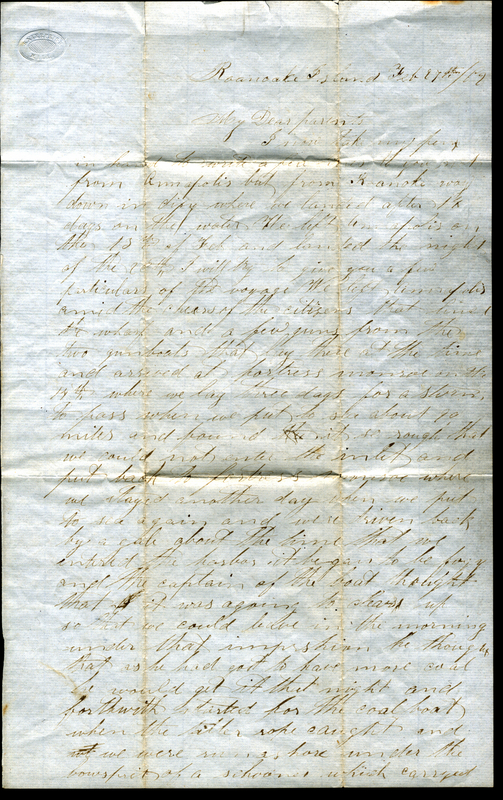 Roanoake Island Feb 27th/62
My Dear parents
I now take my pen
in hand to write a few
from Annapolis but from Roanoke way
down in dixy where we landed after 14
days on the water We left Annapolis on
the 13th of Feb and landed the night
of the 26th I will try to give you a few
perticulars of the voyage We left Annapolis
amid the cheers of the citizens that lined
the wharf and a few guns from the
two gunboats that lay there at the time
and arrived at fortress monroe on the
15th where we lay three days for a storm
to pass when we put to sea about 50
miles and found it so rough that
we could not enter the inlet and
put back to fortress monroe where
we stayed another day when we put
to sea again and were driven back
by a gale about the time that we
entered the harbor it began to be fogy
and the captain of the boat thought
that it was agoing to clear up
so that we could leave in the morning
under that impression he thought
that as he had got to have more coal
he would get it that night and
forthwith started for the coal boat
when the tiller rope caught and
we were runing bore under the
bowsprit of a schooner which carryed